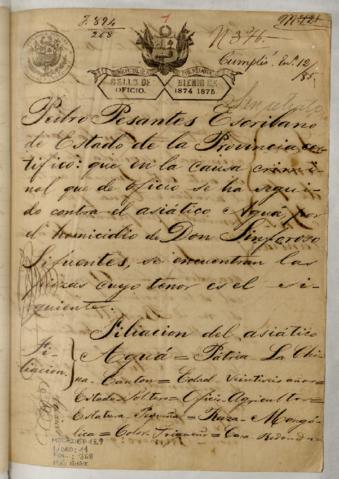 J. 394
268
1
Nº 376.
Cumplió En.º 12/
85.
SELLO DE OFICIO.
BIENIO DE 1874 1875
Pedro Pesantes Escribano
de Estado de la Provincia cer
tifico: que en la causa crimi
nal que de oficio se ha segui
do contra el asiático Aguá, por
el homicidio de Don Sinforoso
Sifuentes, se encuentran las
piezas cuyo tenor es el si-
guiente.
Filiacion del asiático
Filiacion.
Aguá = Pátria La Chi
na Canton = Edad Veintiseis años =
Estado Soltero = Oficio Agricultor =
Estatura Pequeña = Raza Mongó
lica = Color Trigueño = Cara Redonda